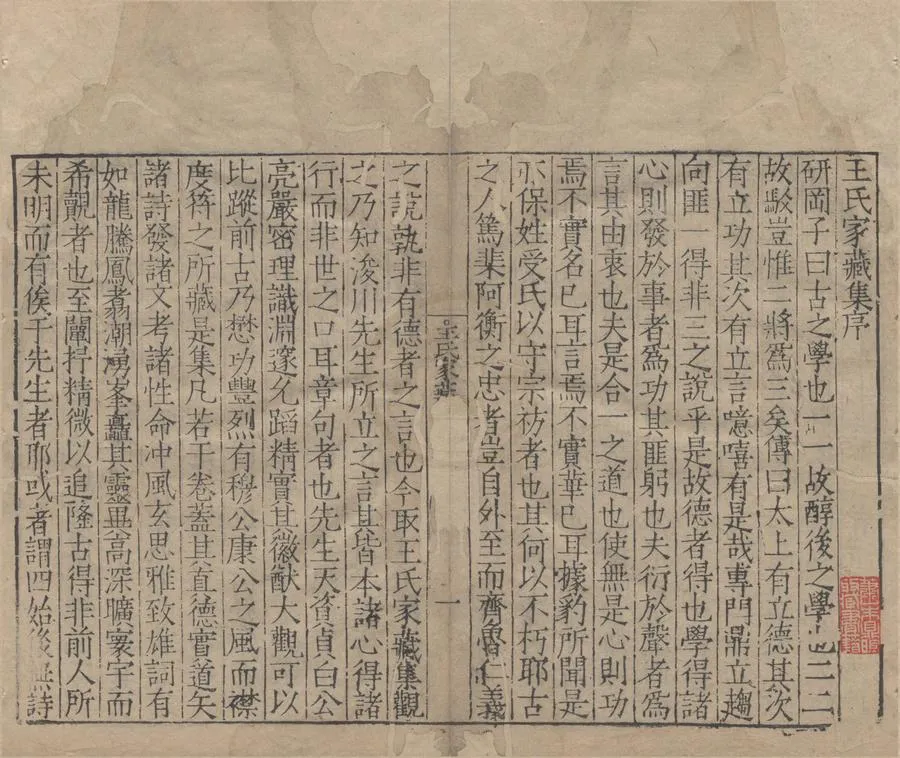 王氏家藏集序
研岡子曰古之學也一一故醇後之學也二二
故駁豈惟二將爲三矣傳曰太上有立德其次
有立功其次有立言噫嘻有是哉專門鼎立趨
向匪一得非三之說乎是故德者得也學得諸
心則發於事者爲功其匪躬也夫衍於聲者爲
言其由衷也夫是合一之道也使無是心則功
焉不實名已耳言焉不實華已耳據豹所聞是
亦保姓受氏以守宗祊者也其何以不朽耶古
之人篤棐阿衡之忠者豈自外至而齊魯仁義
王氏家藏
一
之說孰非有德者之言也今取王氏家藏集觀
之乃知浚川先生所立之言其皆本諸心得諸
行而非世之口耳章句者也先生天資貞白公
亮嚴密理識淵邃允蹈精實其徽猷大觀可以
比蹤前古乃懋功豐烈有穆公康公之風而襟
度符之所藏是集凡若干卷蓋其直德實道矣
諸詩發諸文考諸性命冲風玄思雅致雄詞有
如龍騰鳳翥潮湧峯矗其靈異高深曠寰宇而
希覯者也至闡抒精微以追隆古得非前人所
未明而有俟于先生者耶或者謂四始後無詩